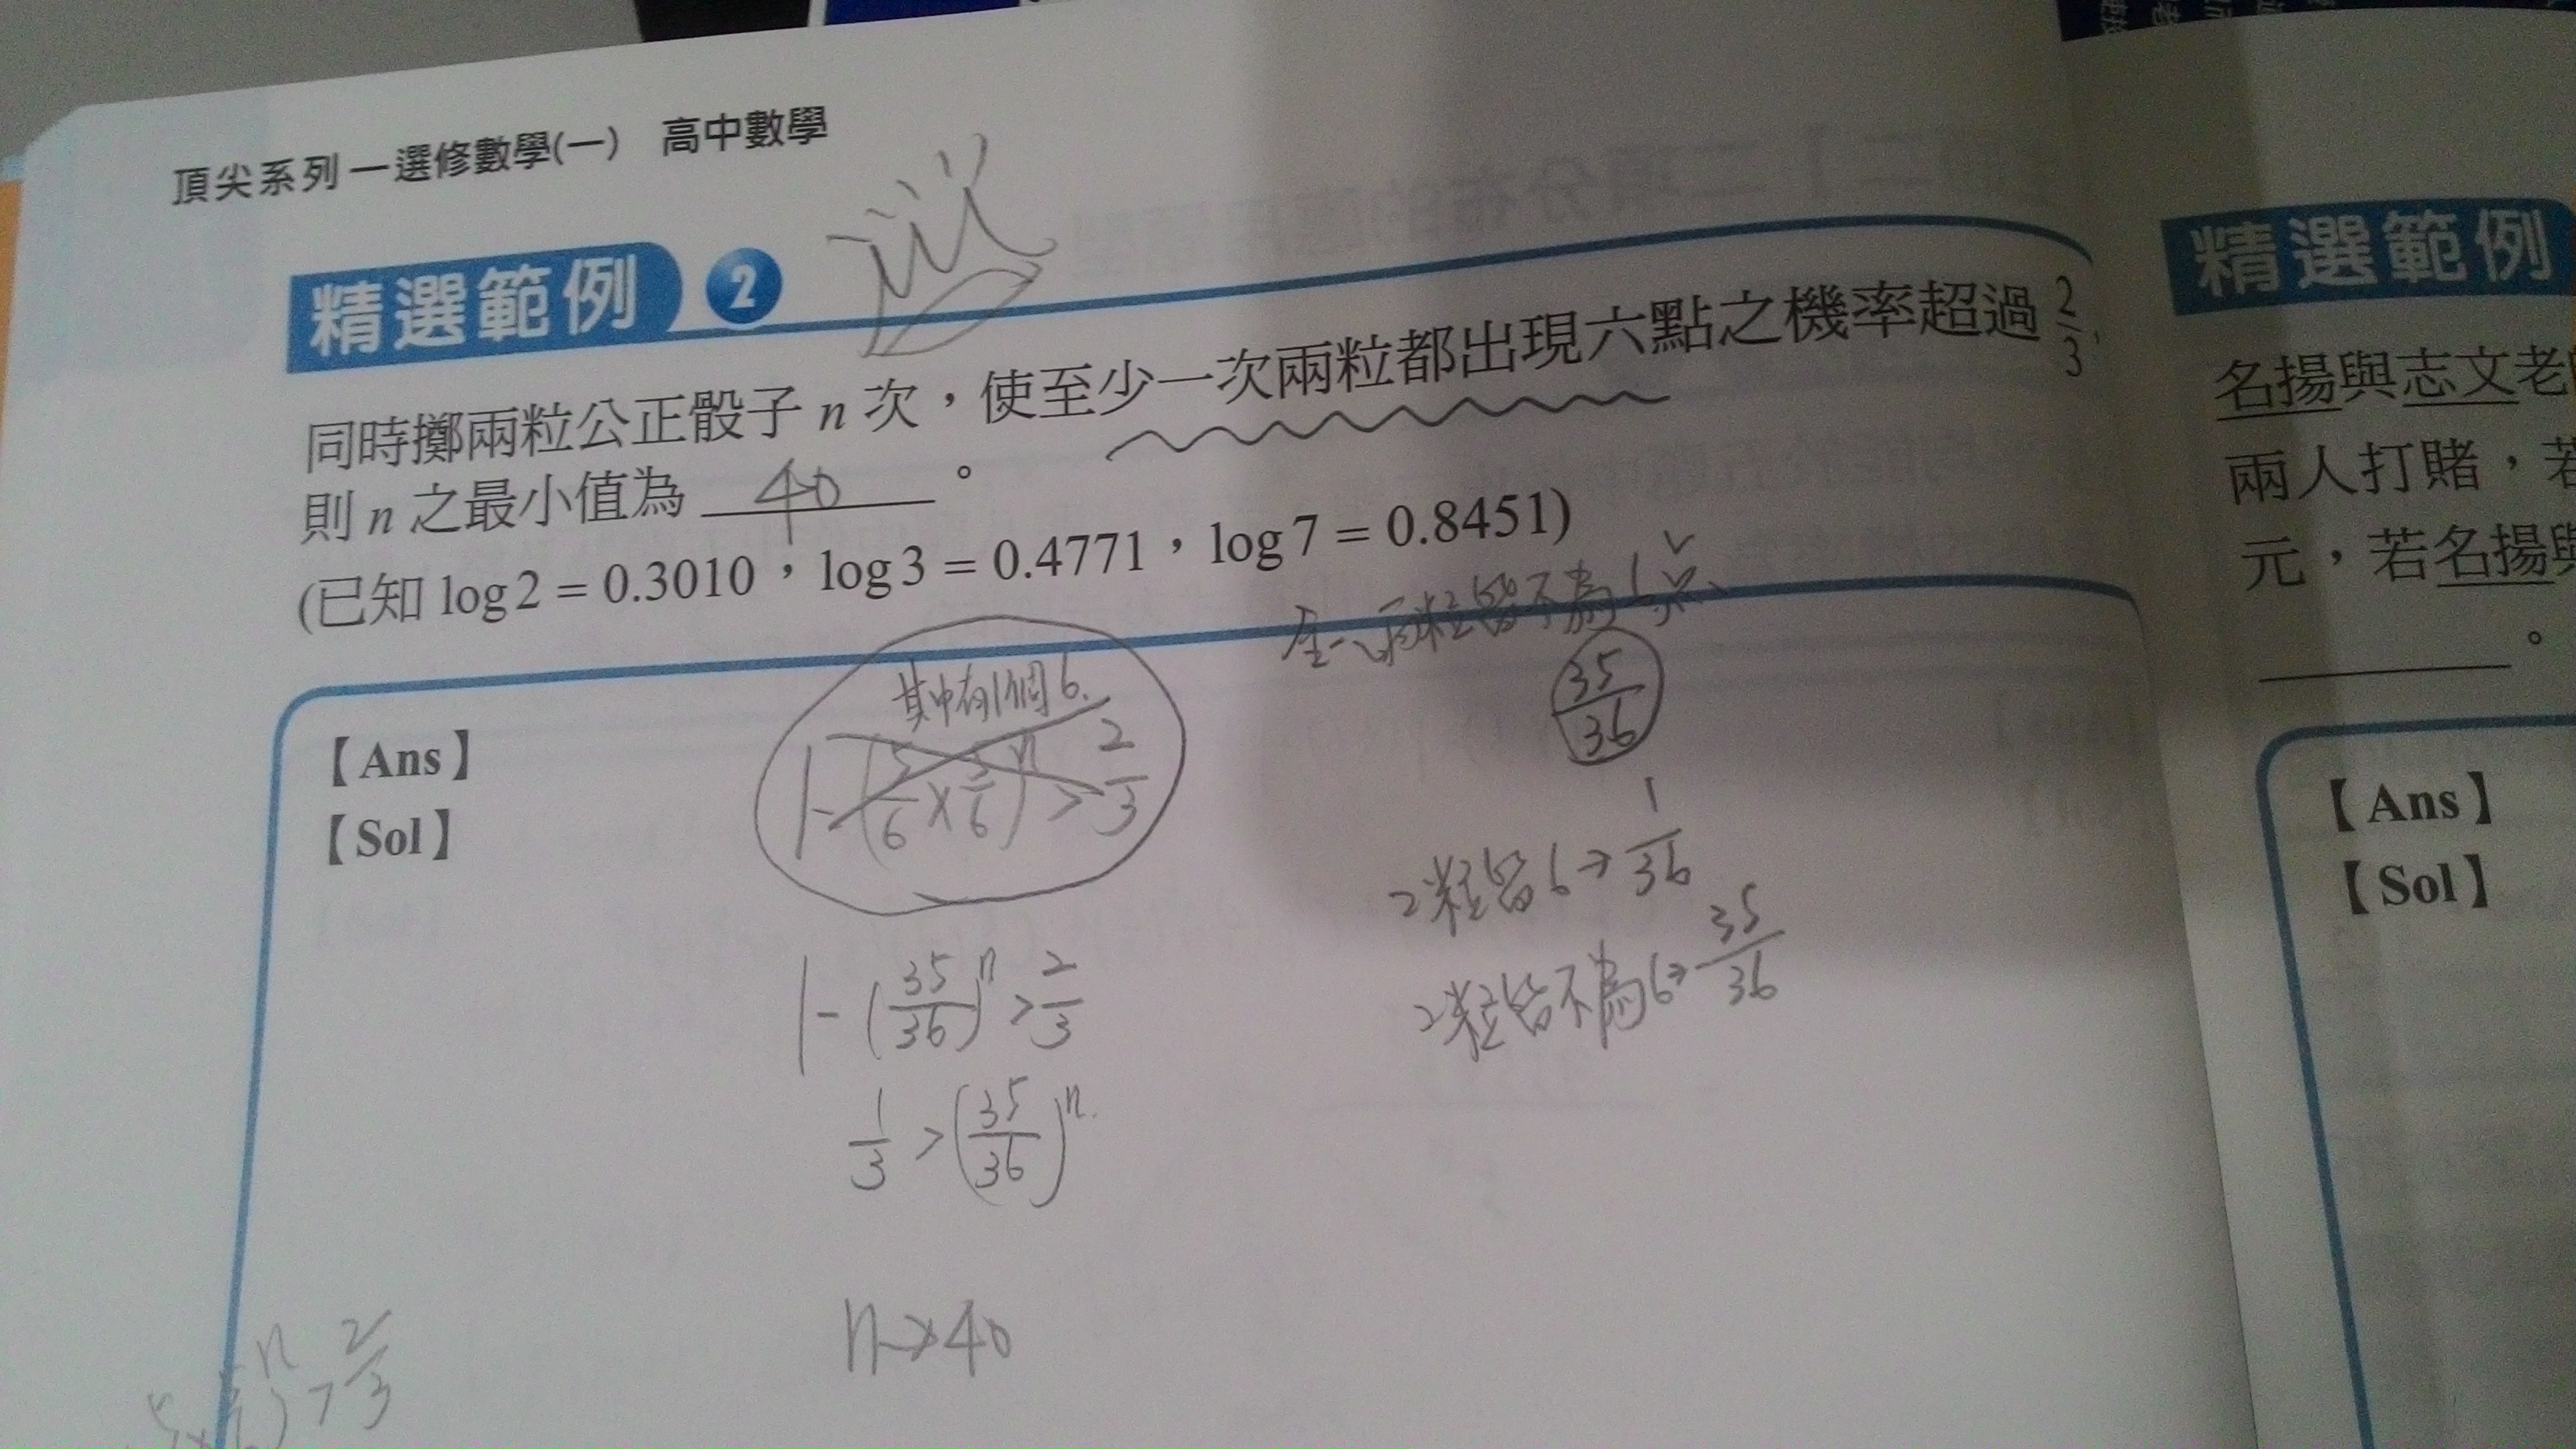 頂尖系列－選修數學(一) 高中數學
精選範例 2
同時擲兩粒公正骰子 n 次，使至少一次兩粒都出現六點之機率超過 2/3，
則 n 之最小值為 40 。
(已知 log 2 = 0.3010，log 3 = 0.4771，log 7 = 0.8451)
兩粒皆不為6點
35/36
【Ans】
【Sol】
其中有1個6.
1-(5/6×5/6)^n > 2/3
2粒皆6→1/36
2粒皆不為6→35/36
1-(35/36)^n > 2/3
1/3 > (35/36)^n
n 40
n
) > 2/3
精選範例
名揚與志文老
兩人打賭，若
元，若名揚與
。
【Ans】
【Sol】